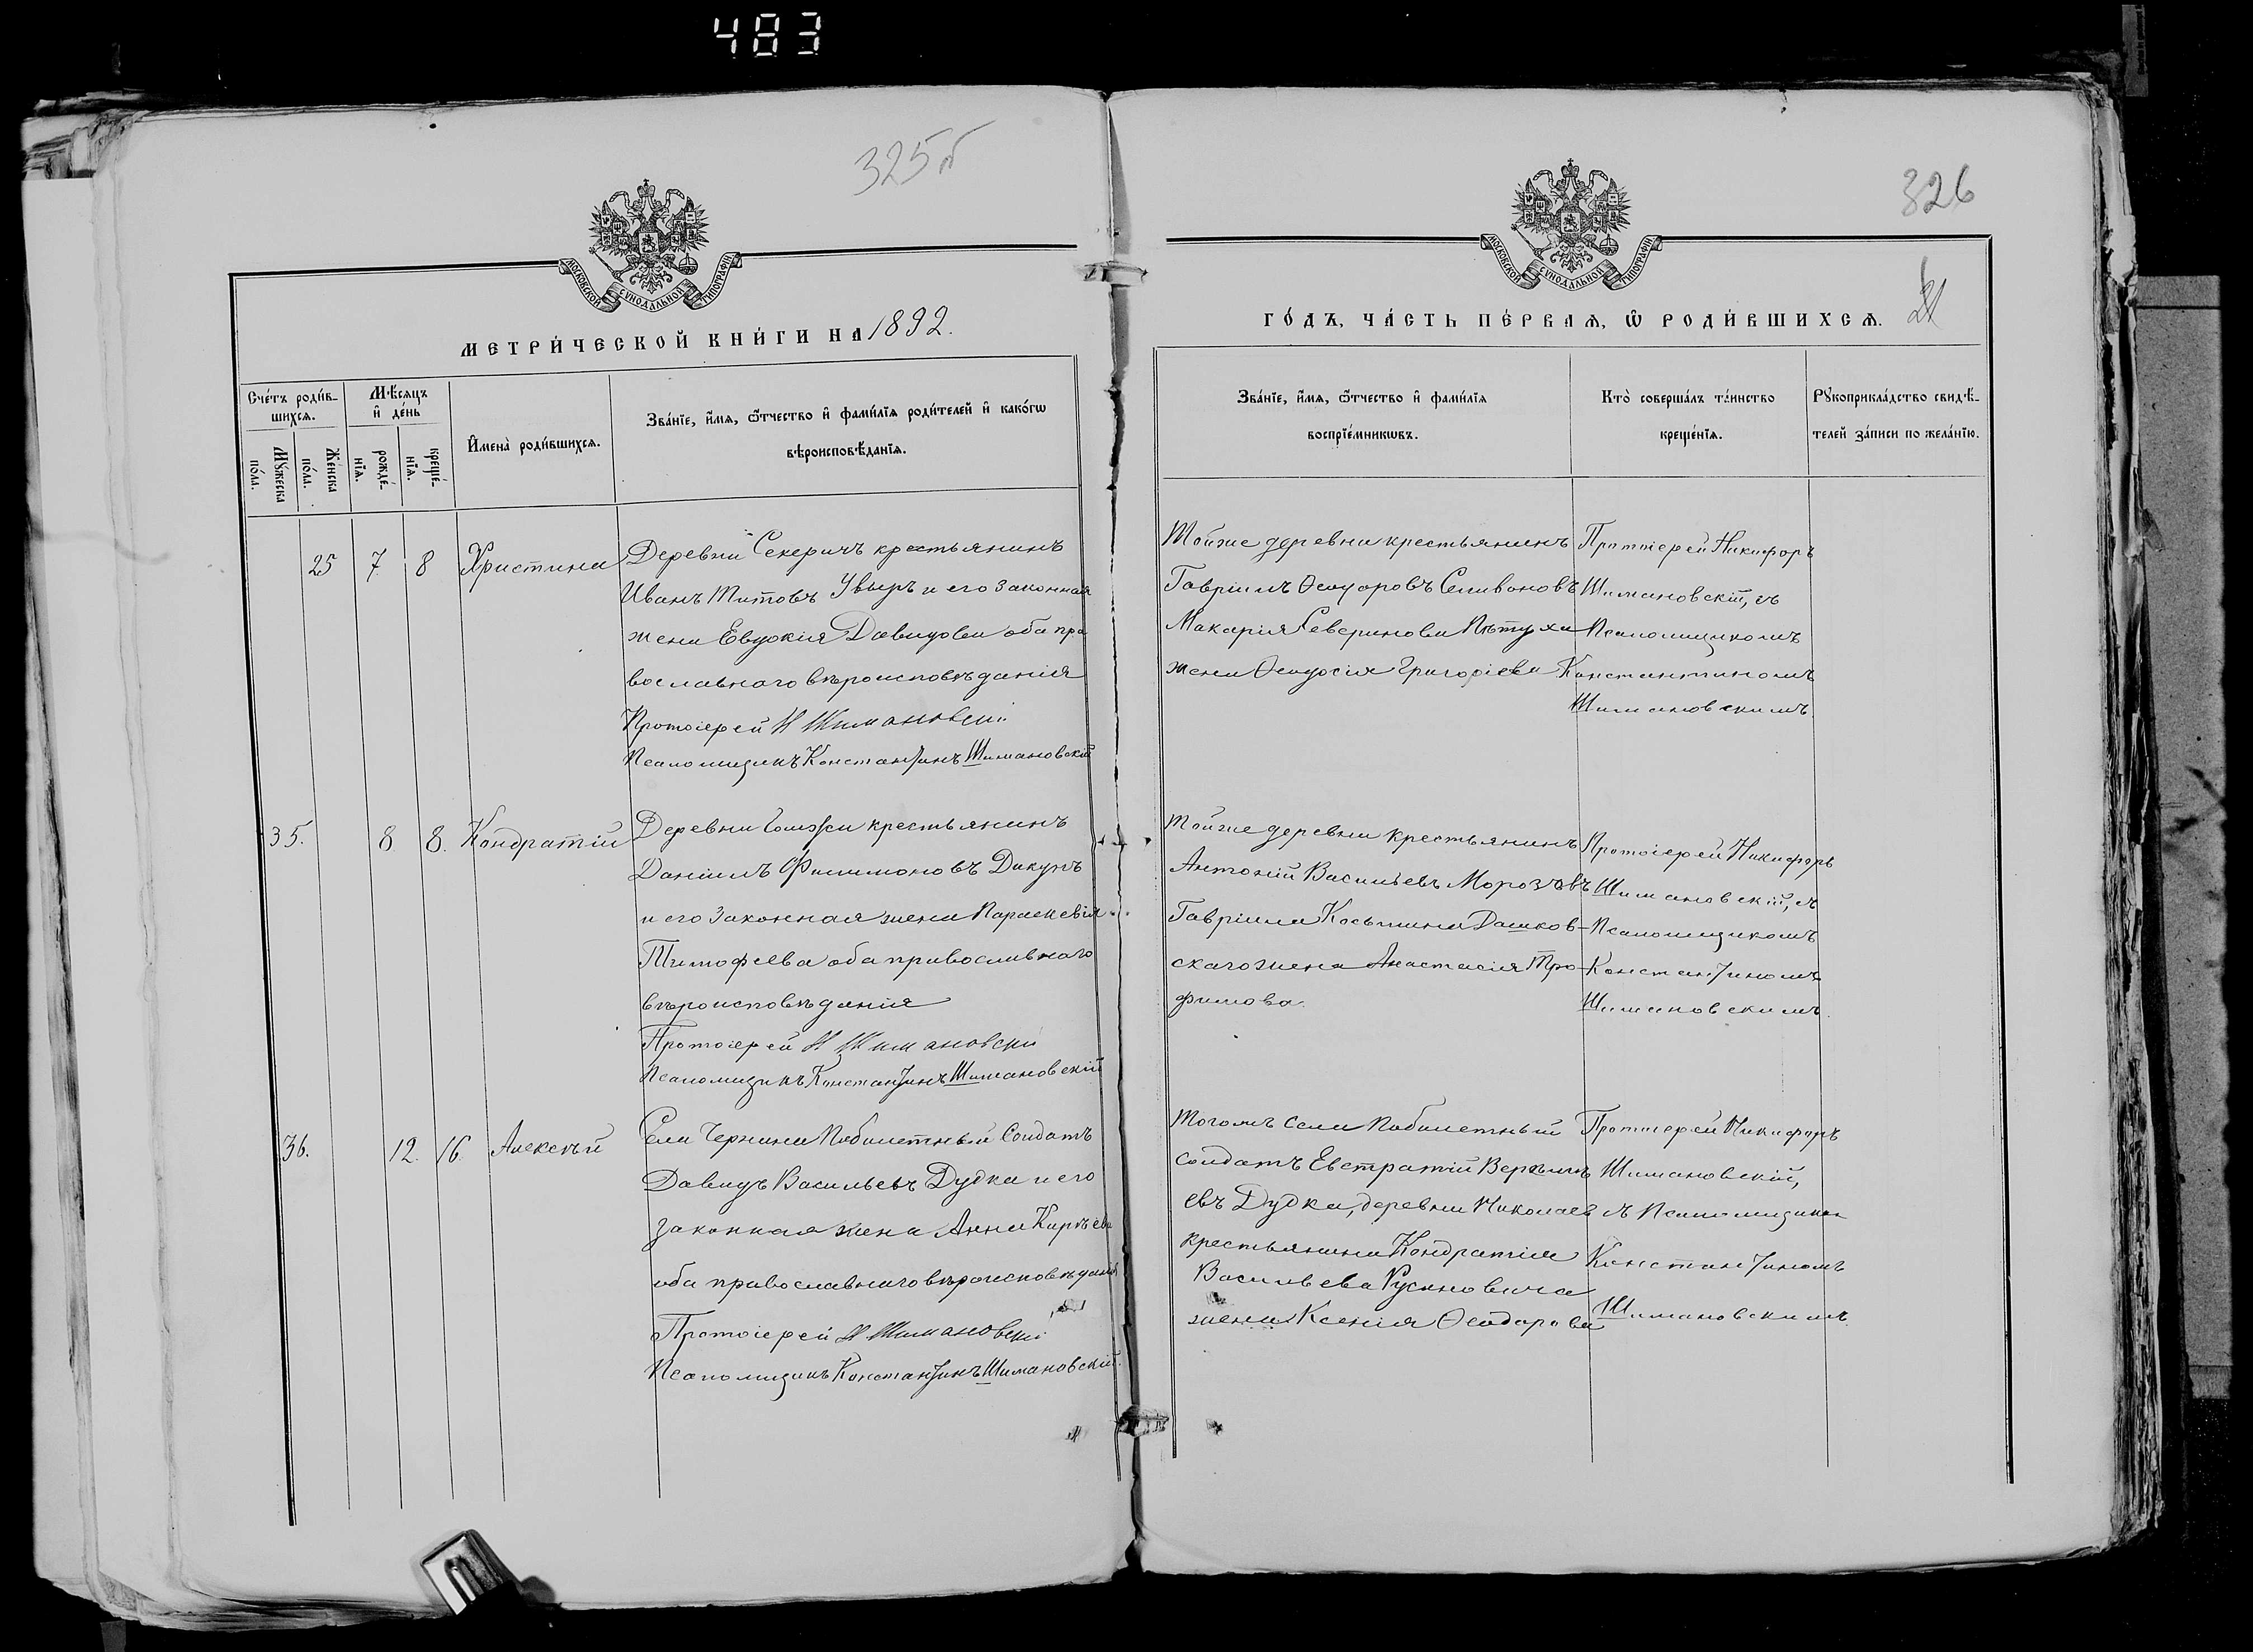 483
325 об
МОСКОВСКОЙ СѴНОДАЛЬНОЙ ТИПОГРАФІИ
МЕТРИ́ЧЕСКОЙ КНИ́ГИ НА 1892.
Сче́тъ роди́в-
шихсѧ.
Мꙋ́жеска
по́ла.
Же́нска
по́ла.
Мѣ́сѧцъ
и҆ де́нь
рожде́-
нїѧ.
креще́-
нїѧ.
И҆мена̀ роди́вшихсѧ.
Зва́нїе, и҆́мѧ, ѻ҆́тчество и҆ фами́лїѧ роди́телей и҆ како́гѡ
вѣроисповѣ́данїѧ.
25 7 8 Христина
Деревни Секеричъ крестьянинъ
Иванъ Титовъ Увыръ и его законная
жена Евдокія Давидова оба пра
вославнаго вѣроисповѣданія
Протоіерей Н Шимановскі
Псаломщикъ Константинъ Шимановскій
35. 8. 8. Кондратій
Деревни крестьянинъ
Даніилъ Филимоновъ Дикунъ
и его законная жена Параскевія
Тимофеева оба православнаго
вѣроисповѣданія
Протоіерей Н Шимановскі
Псаломщикъ Константинъ Шимановскій
36. 12. 16. Алексѣй
Села Чернина Побилетный Солдатъ
Давидъ Васильевъ Дудка и его
законная жена Анна Кирѣева
оба православнаго вѣроисповѣданія
Протоіерей Н Шимановскі
Псаломщикъ Константинъ Шимановскій.
326
21
МОСКОВСКОЙ СѴНОДАЛЬНОЙ ТИПОГРАФІИ
ГО́ДЪ, ЧА́СТЬ ПЕ́РВАѦ, Ѽ РОДИ́ВШИХСѦ.
Зва́нїе, и҆́мѧ, ѻ҆́тчество и҆ фами́лїѧ
воспрїе́мникѡвъ.
Кто̀ соверша́лъ та́инство
креще́нїѧ.
Рꙋкоприкла́дство свидѣ́-
телей за́писи по жела́нїю.
Тойже деревни крестьянинъ
Гавріилъ Ѳеодоровъ Селивоновъ
Макарія Северинова Пѣтуха
жена Ѳеодосія Григоріева
Протоіерей Никифоръ
Шимановскій, съ
Псаломщикомъ
Константиномъ
Шимановскимъ.
Тойже деревни крестьянинъ
Антоній Васильевъ Морозовъ
Гавріила Косьмина Дашков-
скаго жена Анастасія Тро-
фимова
Протоіерей Никифоръ
Шимановскій, съ
Псаломщикомъ
Константиномъ
Шимановскимъ.
Тогожъ села Побилетный
солдатъ Евстратій
евъ Дудка, деревни Николаев
крестьянина Кондратія
Васильева Русиновича
жена Ксенія Ѳеодорова
Протоіерей Никифоръ
Шимановскій,
съ Псаломщиком
Константиномъ
Шимановскимъ.